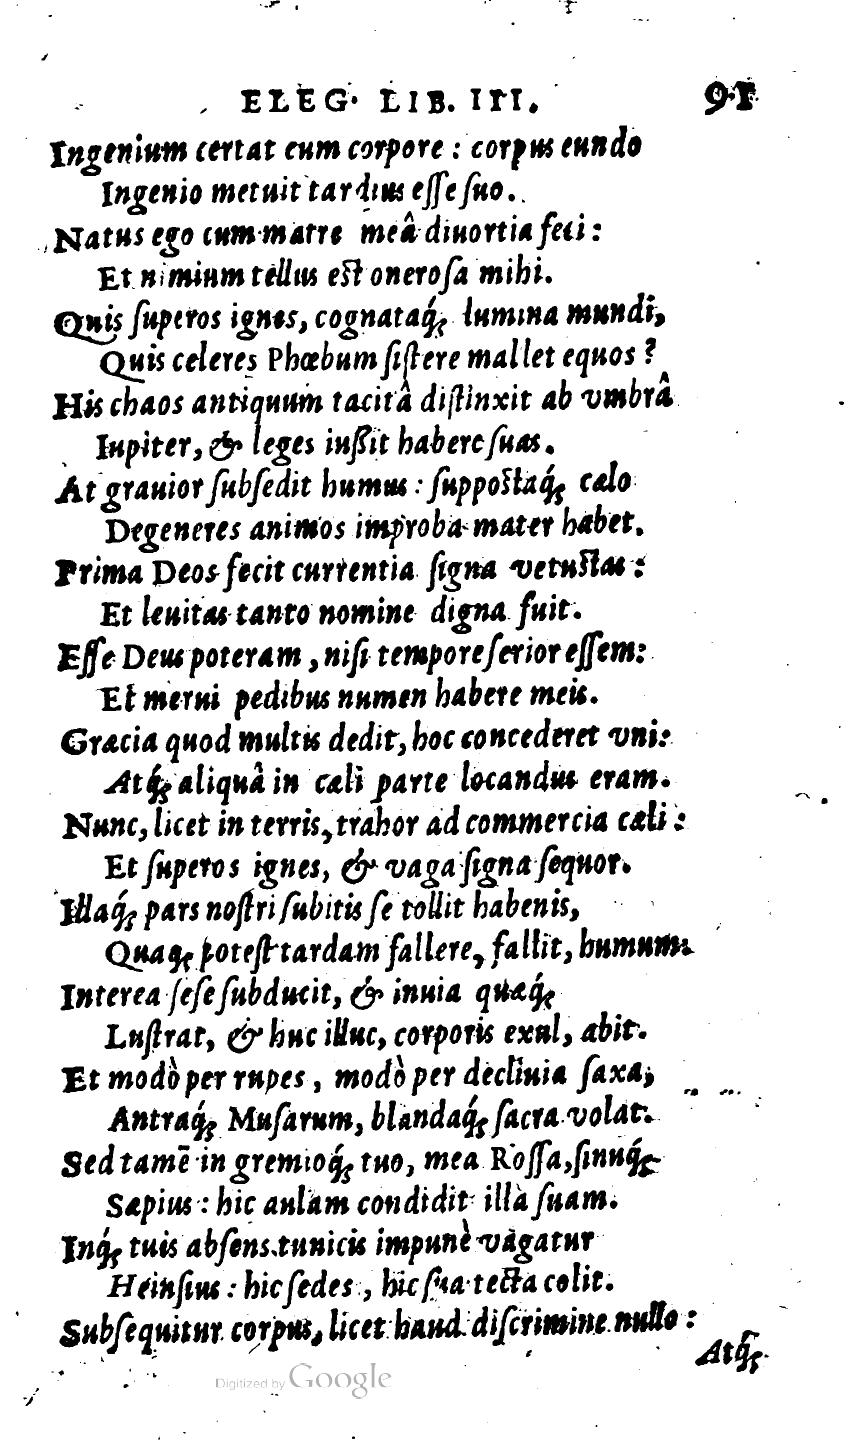 ELEG. LIB. III. 91
Ingenium certat cum corpore : corpus eundo
Ingenio metuit tardius eſſe ſuo.
Natus ego cum matre meâ diuortia feci :
Et nimium tellus est oneroſa mihi.
Quis ſuperos ignes, cognataq́; lumina mundi,
Quis celeres Phœbum ſiſtere mallet equos ?
His chaos antiquum tacitâ diſtinxit ab vmbrâ
Iupiter, & leges iußit habere ſuas.
At grauior ſubſedit humus : ſuppostaq́; cælo
Degeneres animos improba mater habet.
Prima Deos fecit currentia ſigna vetustas :
Et leuitas tanto nomine digna fuit.
Eſſe Deus poteram, niſi tempore ſerior eſſem:
Et merui pedibus numen habere meis.
Græcia quod multis dedit, hoc concederet vni:
Atq́; aliquâ in cæli parte locandus eram.
Nunc, licet in terris, trahor ad commercia cæli :
Et ſuperos ignes, & vaga ſigna ſequor.
Illaq́; pars noſtri ſubitis ſe tollit habenis,
Quaq; poteſt tardam fallere, fallit, humum.
Interea ſeſe ſubducit, & inuia quæq́;
Luſtrat, & huc illuc, corporis exul, abit.
Et modò per rupes, modò per decliuia ſaxa,
Antraq́; Muſarum, blandaq́; ſacra volat.
Sed tamē in gremioq́; tuo, mea Roſſa, ſinuq́;
Sæpius : hic aulam condidit illa ſuam.
Inq́; tuis abſens tunicis impunè vagatur
Heinſius : hic ſedes, hic ſua tecta colit.
Subſequitur corpus, licet haud diſcrimine nullo :
Atq́;
Digitized by Google